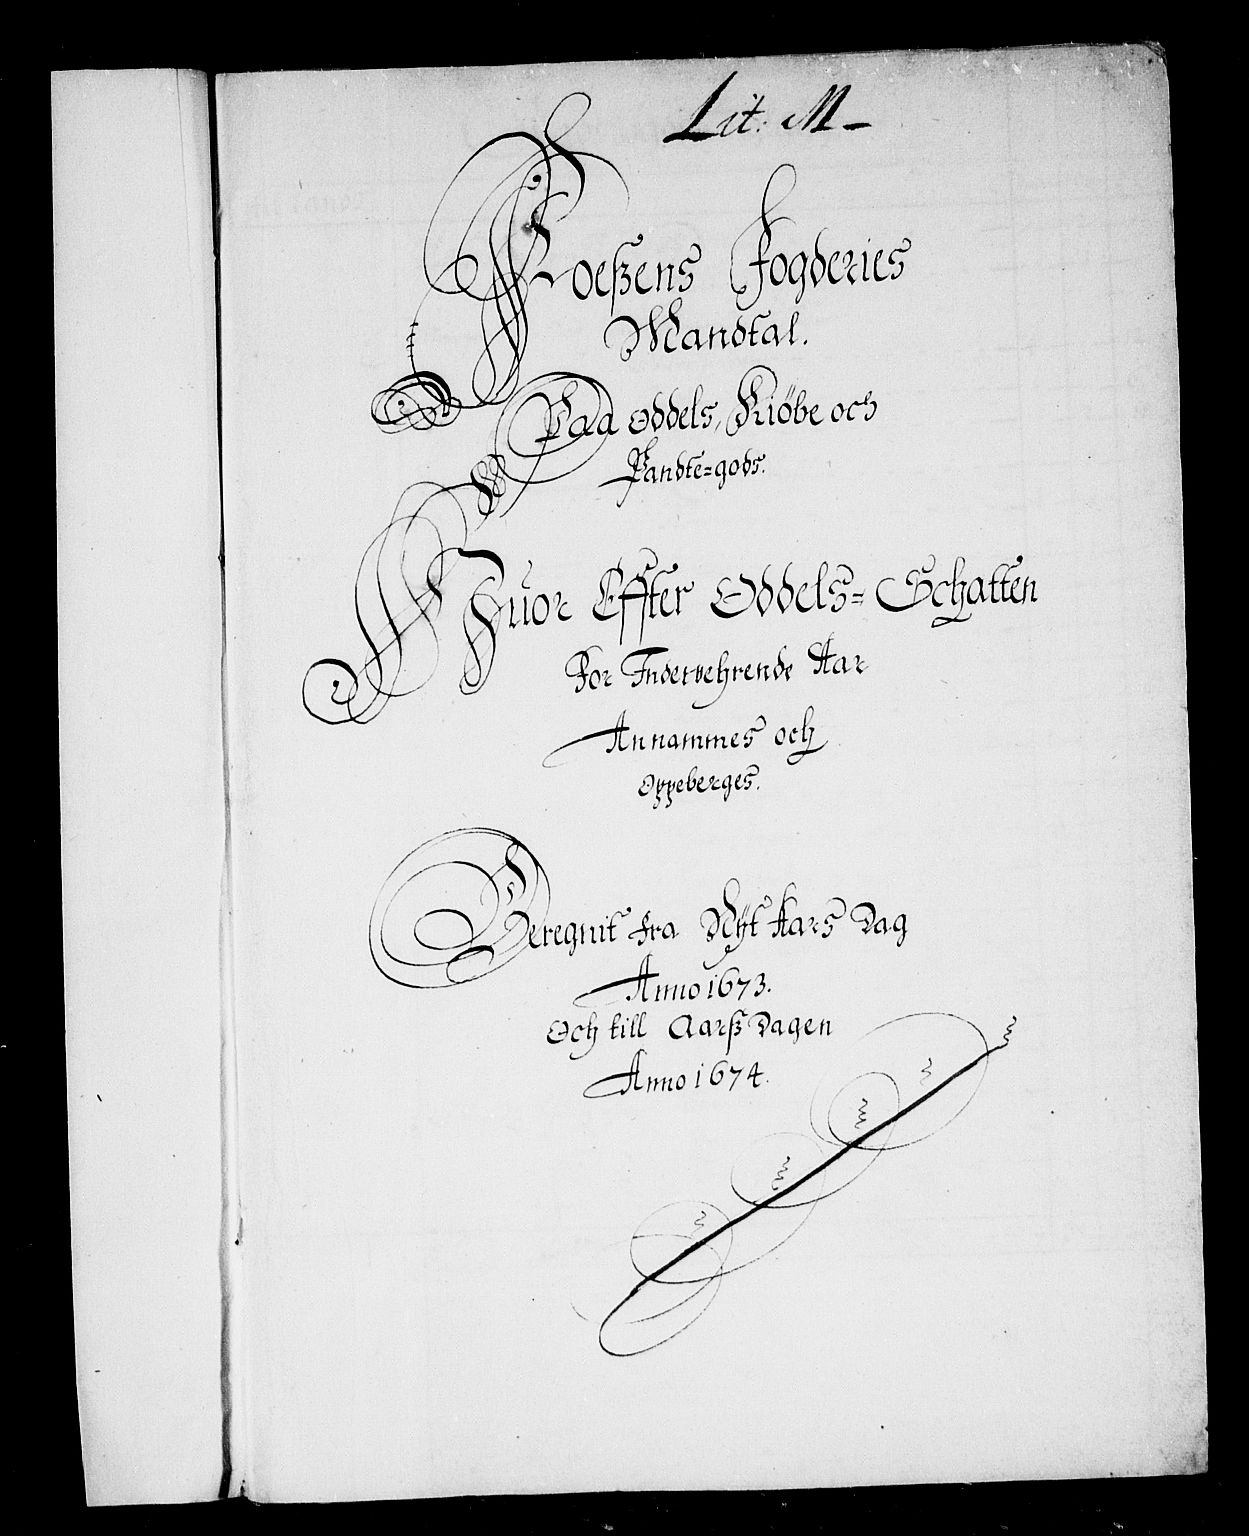 Lit: M
Foeßens Fogderies
Mandtal.
Paa Oddels, Kiöbe och
Pandte=gods.
Huor Effter Oddels=Schatten
For Indervehrende Aar
Annammes och
Oppeberges.
Beregnit fra Nÿt Aars Dag
Anno 1673.
Och till Aarß Dagen
Anno 1674.